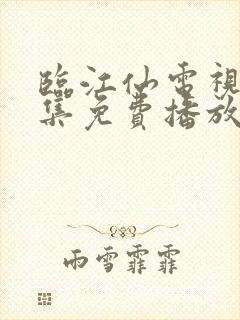 臨江仙電視
集免費播放
雨雪霏霏